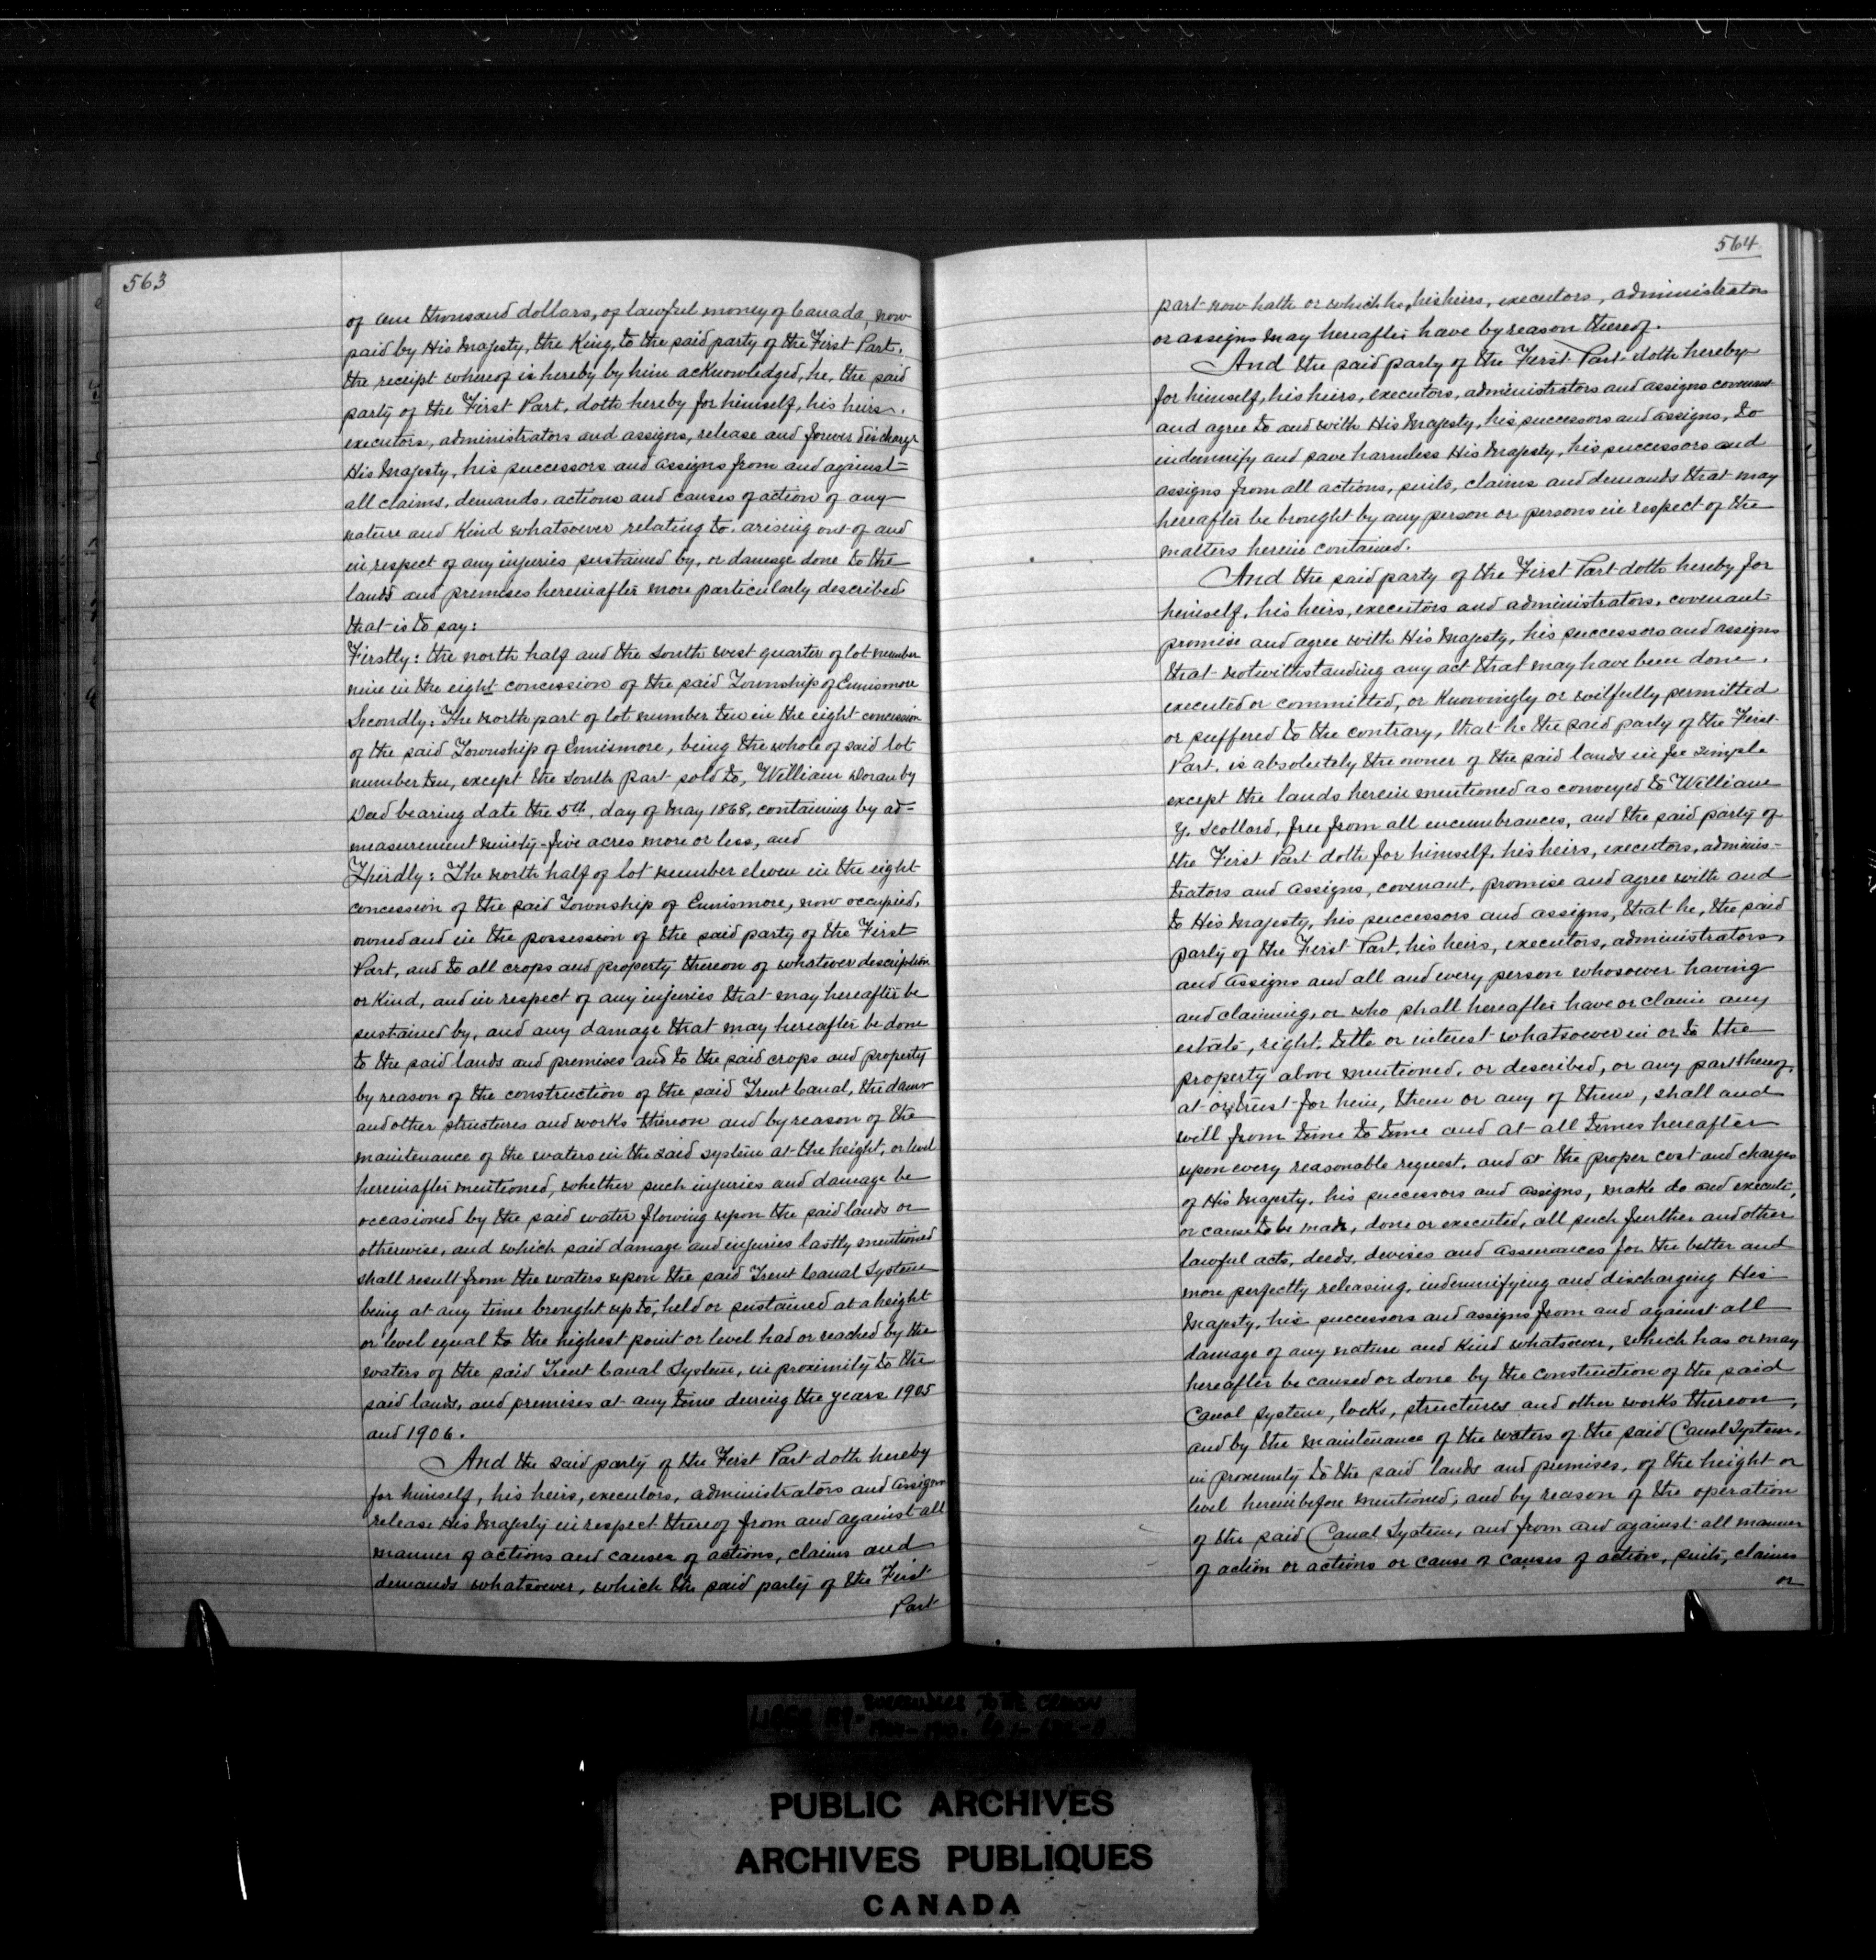 563
of one thousand dollars, of lawful money of Canada, now
paid by His Majesty, the King, to the said party of the First Part,
the receipt whereof is hereby by him acknowledged, he, the said
party of the First Part, doth hereby for himself, his heirs,
executors, administrators and assigns, release and forever discharge
His Majesty, his successors and assigns from and against
all claims, demands, actions and causes of action of any
nature and kind whatsoever relating to, arising out of and
in respect of any injuries sustained by, or damage done to the
lands and premises hereinafter more particularly described
that is to say:
Firstly: the north half and the South west quarter of lot number
nine in the eight concession of the said Township of Ennismore
Secondly: The north part of lot number ten in the eight concession
of the said Township of Ennismore, being the whole of said lot
number ten, except the South part sold to, William Doran by
Deed bearing date the 5th, day of May 1868, containing by ad-
measurement ninety-five acres more or less, and
Thirdly: The north half of lot number eleven in the eight
concession of the said Township of Ennismore, now occupied,
owned and in the possession of the said party of the First
Part, and to all crops and property thereon of whatever description
or kind, and in respect of any injuries that may hereafter be
sustained by, and any damage that may hereafter be done
to the said lands and premises and to the said crops and property
by reason of the construction of the said Trent Canal, the dams
and other structures and works thereon and by reason of the
maintenance of the waters in the said system at the height, or level
hereinafter mentioned, whether such injuries and damage be
occasioned by the said water flowing upon the said lands or
otherwise, and which said damage and injuries lastly mentioned
shall result from the waters upon the said Trent Canal System
being at any time brought up to, held or sustained at a height
or level equal to the highest point or level had or reached by the
waters of the said Trent Canal System, in proximity to the
said lands, and premises at any time during the years 1905
and 1906.
And the said party of the First Part doth hereby
for himself, his heirs, executors, administrators and assigns
release His Majesty in respect thereof from and against all
manner of actions and causes of actions, claims and
demands whatsoever, which the said party of the First
Part
564
part now hath or which he, his heirs, executors, administrators
or assigns may hereafter have by reason thereof.
And the said party of the First Part doth hereby
for himself, his heirs, executors, administrators and assigns covenant
and agree to and with His Majesty, his successors and assigns, to
indemnify and save harmless His Majesty, his successors and
assigns from all actions, suits, claims and demands that may
hereafter be brought by any person or persons in respect of the
matters herein contained.
And the said party of the First Part doth hereby for
himself, his heirs, executors and administrators, covenant
promise and agree with His Majesty, his successors and assigns
that notwithstanding any act that may have been done,
executed or committed, or knowingly or wilfully permitted
or suffered to the contrary, that he the said party of the First
Part, is absolutely the owner of the said lands in fee simple
except the lands herein mentioned as conveyed to William
Y. Scollard, free from all encumbrances, and the said party of
the First Part doth for himself, his heirs, executors, adminis-
trators and assigns, covenant, promise and agree with and
to His Majesty, his successors and assigns, that he, the said
party of the First Part, his heirs, executors, administrators,
and assigns and all and every person whosoever having
and claiming, or who shall hereafter have or claim any
estate, right, title or interest whatsoever in or to the
property above mentioned, or described, or any part thereof,
at or trust for him, them or any of them, shall and
will from time to time and at all times hereafter
upon every reasonable request, and at the proper cost and charges
of His Majesty, his successors and assigns, make do and execute,
or cause to be made, done or executed, all such further and other
lawful acts, deeds, devises and assurances for the better and
more perfectly releasing, indemnifying and discharging His
Majesty, his successors and assigns from and against all
damage of any nature and kind whatsoever, which has or may
hereafter be caused or done by the construction of the said
Canal system, locks, structures and other works thereon,
and by the maintenance of the waters of the said Canal System,
in proximity to the said lands and premises, of the height or
level hereinbefore mentioned; and by reason of the operation
of the said Canal System, and from and against all manner
of action or actions or cause or causes of action, suits, claims
or
PUBLIC ARCHIVES
ARCHIVES PUBLIQUES
CANADA